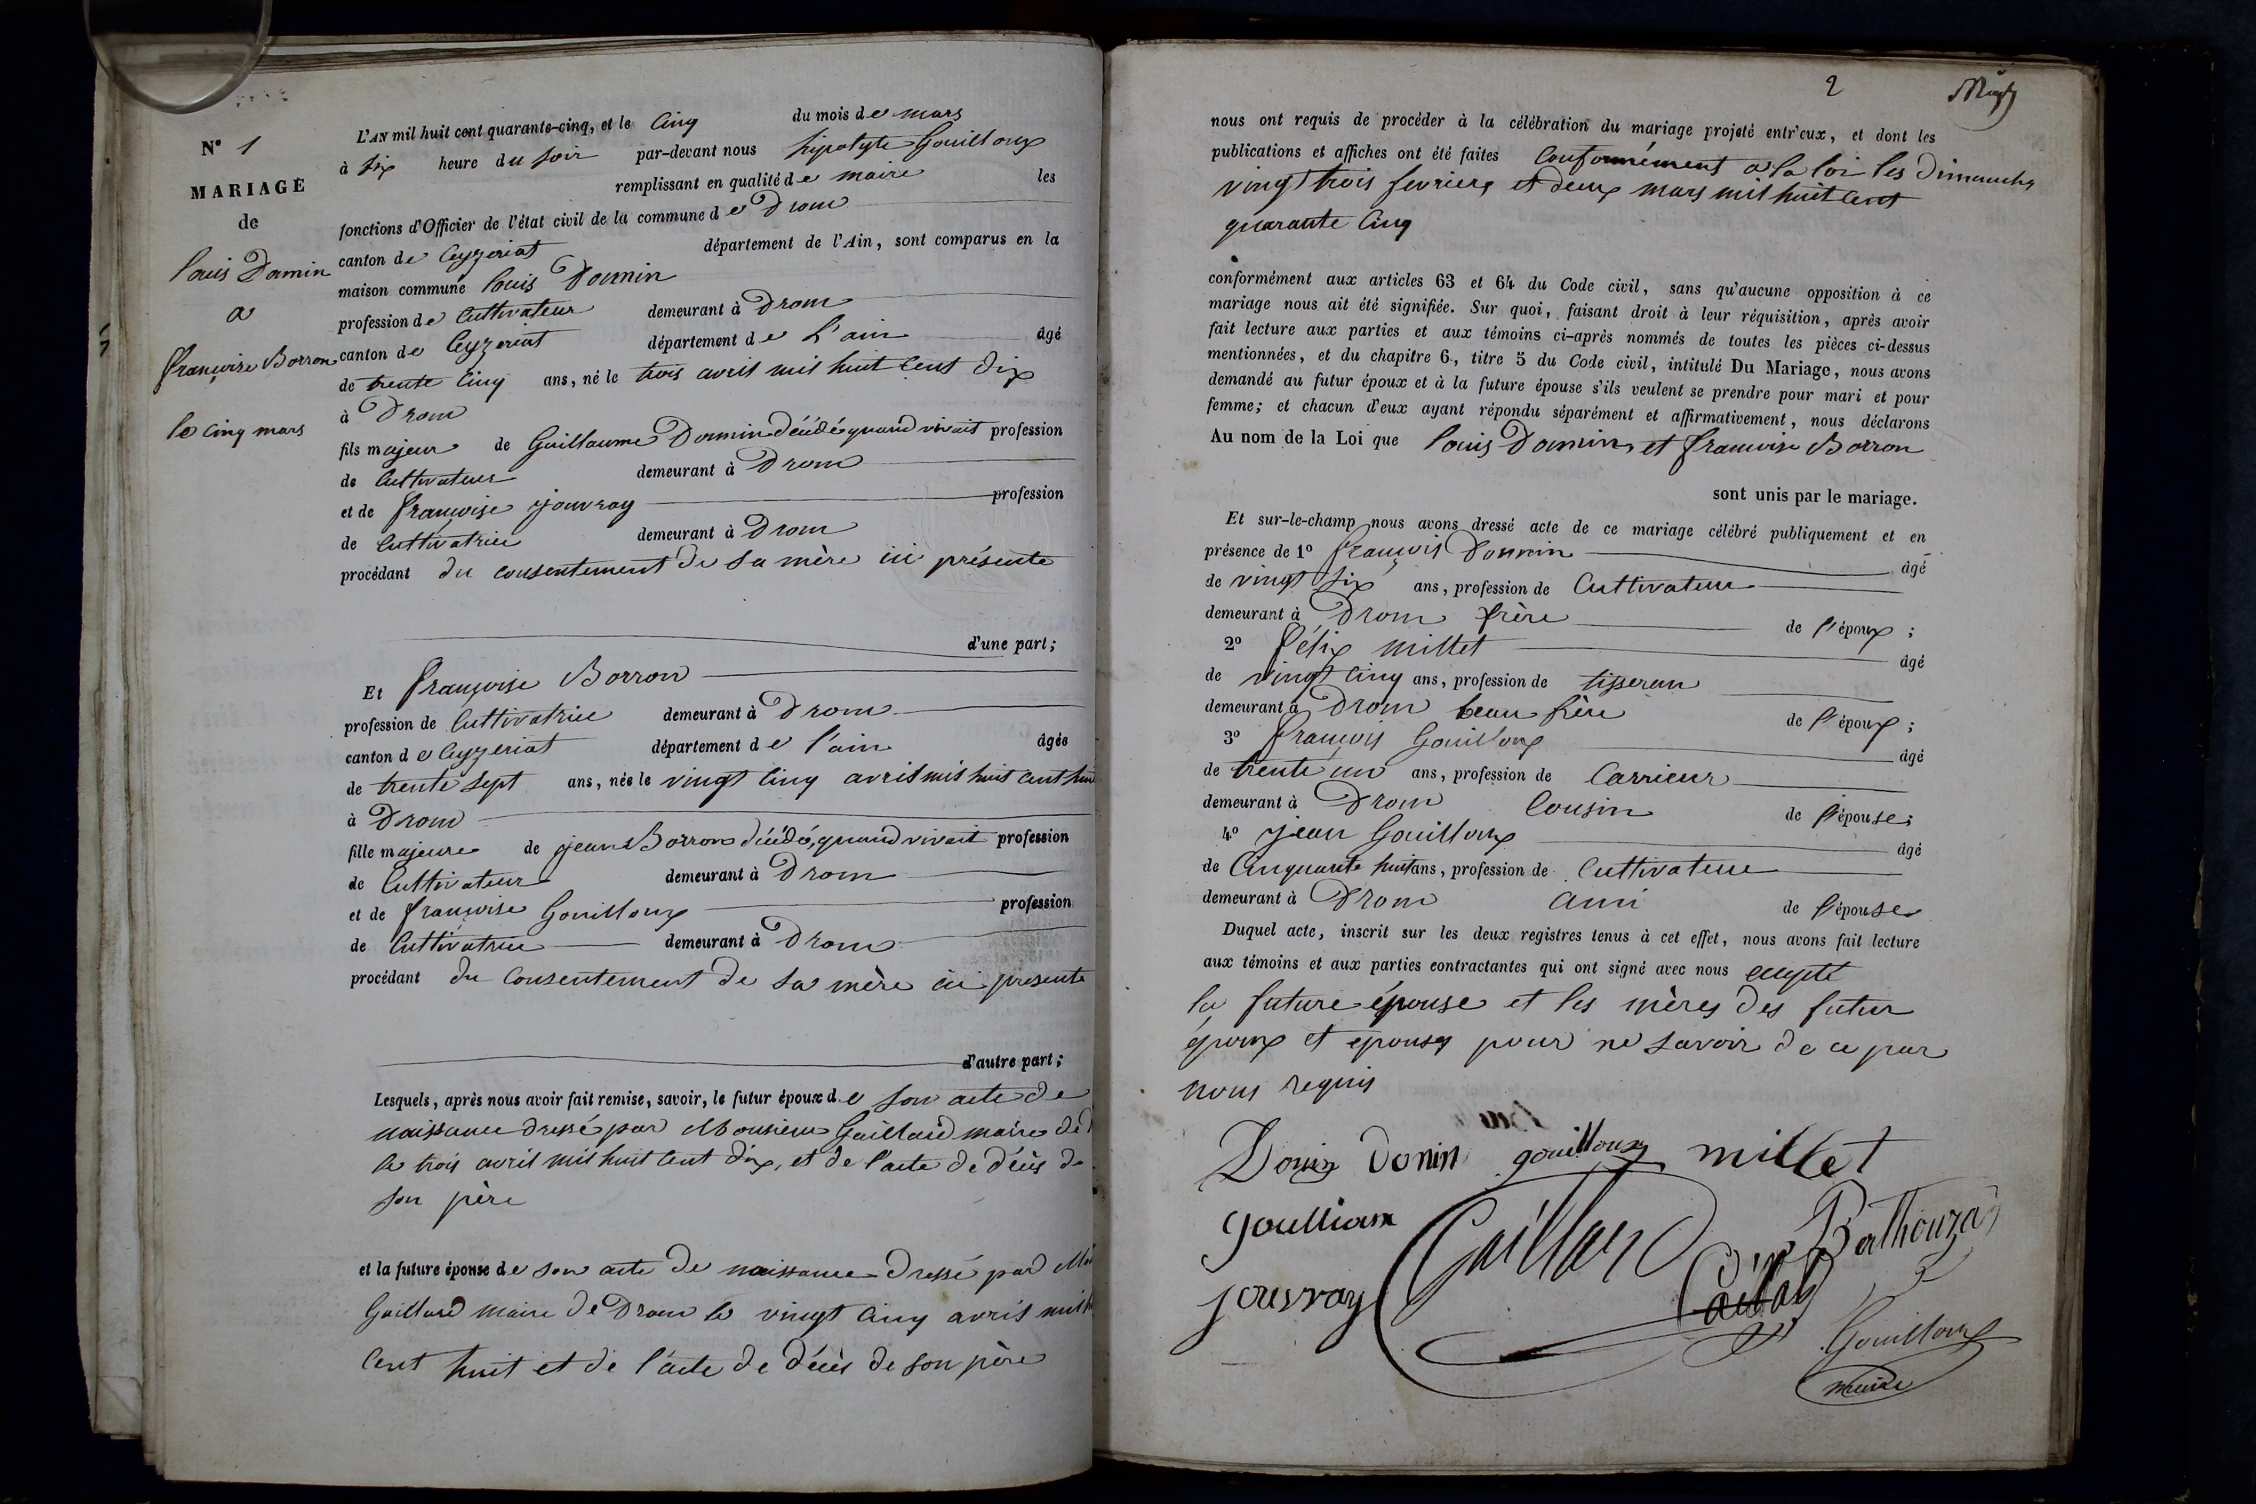 N° 1
MARIAGE
de
louis Donnin
a
françoise Borron
le cinq mars
L'AN mil huit cent quarante-cinq, et le cinq du mois de mars
à six heure du soir par-devant nous hipolyte Gouilloux
remplissant en qualité de maire les
fonctions d'Officier de l'état civil de la commune de Drom
canton de Ceyzeriat département de l'Ain, sont comparus en la
maison commune louis Donnin
profession de Cultivateur demeurant à Drom
canton de Ceyzeriat département de L'ain âgé
de trente cinq ans, né le trois avril mil huit cent dix
à Drom
fils majeur de Guillaume Donnin décédé, quand vivait profession
de Cultivateur demeurant à Drom
et de françoise jouvray profession
de Cultivatrice demeurant à Drom
procédant du consentement de sa mère ici présente
d'une part;
Et françoise Borron
profession de Cultivatrice demeurant à Drom
canton de Ceyzeriat département de l'ain âgée
de trente sept ans, née le vingt cinq avril mil huit cent huit
à Drom
fille majeure de jean Borron décédé, quand vivait profession
de Cultivateur demeurant à Drom
et de françoise Gouilloux profession
de Cultivatrice demeurant à Drom
procédant du consentement de sa mère ici presente
d'autre part;
Lesquels, après nous avoir fait remise, savoir, le futur époux de son acte de
naissance dressé par Monsieur Gaillard maire de
le trois avril mil huit cent dix, et de l'acte de décès de
son père
et la future épouse de son acte de naissance dressé par
Gaillard maire de Drom le vingt cinq avril mil
cent huit et de l'acte de décès de son père
2
nous ont requis de procéder à la célébration du mariage projeté entr'eux, et dont les
publications et affiches ont été faites Conformément a la loi les Dimanches
vingt trois fevrier et deux mars mil huit cent
quarante cinq
conformément aux articles 63 et 64 du Code civil, sans qu'aucune opposition à ce
mariage nous ait été signifiée. Sur quoi, faisant droit à leur réquisition, après avoir
fait lecture aux parties et aux témoins ci-après nommés de toutes les pièces ci-dessus
mentionnées, et du chapitre 6, titre 5 du Code civil, intitulé Du Mariage, nous avons
demandé au futur époux et à la future épouse s'ils veulent se prendre pour mari et pour
femme; et chacun d'eux ayant répondu séparément et affirmativement, nous déclarons
Au nom de la Loi que louis Donnin, et francoise Borron
sont unis par le mariage.
Et sur-le-champ nous avons dressé acte de ce mariage célébré publiquement et en
présence de 1° françois Donnin âgé
de vingt six ans, profession de Cultivateur
demeurant à Drom frère de l'époux;
2° félix millet âgé
de vingt cinq ans, profession de tisseran
demeurant à Drom beau frère de l'époux;
3° françois Gouilloux âgé
de trente un ans, profession de Carrieur
demeurant à Drom Cousin de l'épouse;
4° jean Gouilloux âgé
de Cinquante huit ans, profession de Cultivateur
demeurant à Drom ami de l'épouse
Duquel acte, inscrit sur les deux registres tenus à cet effet, nous avons fait lecture
aux témoins et aux parties contractantes qui ont signé avec nous excepté
la future épouse et les mères des futur
époux et epouses pour ne savoir de ce par
nous requis
Donin gouilloux millet
jouvray Gaillard
Gouilloux
maire